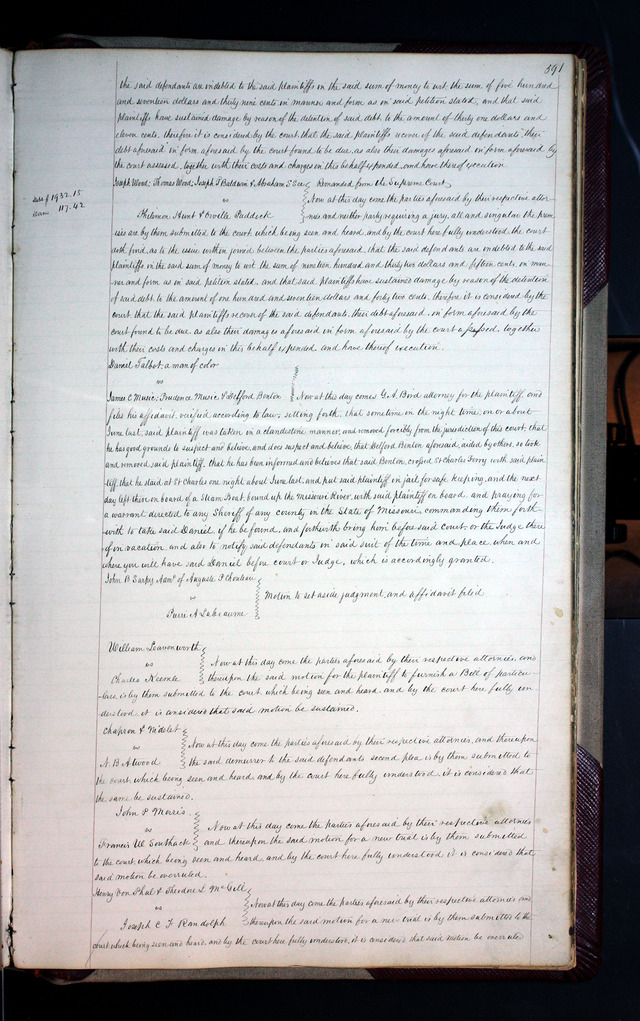 391
the said defendants are indebted to the said plaintiffs in the said sum of money to wit, the sum of five hundred
and seventeen dollars and thirty nine cents in manner and form as in said petition stated, and that said
plaintiffs have sustained damage by reason of the detention of said debt, to the amount of thirty one dollars and
eleven cents. therefore it is considered by the court that the said plaintiffs recover of the said defendants, their
debt aforesaid in form aforesaid by the court found to be due, as also their damages aforesaid in form aforesaid by
the court assessed, together with their costs and charges in this behalf expended, and have thereof execution.
Joseph Wood, Thomas Wood, Joseph T Baldwin & Abraham S Remanded from the Supreme Court
debt $ 1932.15
dam 117.42
vs
Now at this day come the parties aforesaid by their respective attor-
Philemon Hunt & Orville Paddock
nies and neither party requiring a jury, all and singular the prem-
ises are by them submitted to the court, which being seen and heard, and by the court here fully understood, the court
doth find, as to the issue within joined between the parties aforesaid, that the said defendants are indebted to the said
plaintiffs in the said sum of money to wit, the sum of nineteen hundred and thirty two dollars and fifteen cents, in man-
ner and form as in said petition stated, and that said plaintiffs have sustained damage by reason of the detention
of said debt, to the amount of one hundred and seventeen dollars and forty two cents. therefore it is considered by the
court that the said plaintiffs recover of the said defendants, their debt aforesaid, in form aforesaid by the
court found to be due, as also their damages aforesaid in form aforesaid by the court assessed, together
with their costs and charges in this behalf expended, and have thereof execution.
Daniel Talbot, a man of color
vs
James C Music, Prudence Music & Belford Benton Now at this day comes G. A. Bird attorney for the plaintiff, and
files his affidavit, verified according to law, setting forth, that sometime in the night time, on or about
June last, said plaintiff was taken in a clandestine manner, and removed forcibly from the jurisdiction of this court, that
he has good grounds to suspect and believe, and does suspect and believe, that Belford Benton aforesaid, aided by others, so took
and removed said plaintiff, that he has been informed and believes that said Benton, crossed St Charles Ferry with said plain
tiff, that he staid at St Charles one night about June last, and put said plaintiff in jail for safe keeping, and the next
day left there on board of a Steam Boat bound up the Missouri River, with said plaintiff on board, and praying for
a warrant directed to any Sheriff of any county in the State of Missouri, commanding them forth-
with to take said Daniel if he be found, and forthwith bring him before said court, or the Judge there
of in vacation, and also to notify said defendants in said suit of the time and place, when and
where you will have said Daniel before court or Judge, which is accordingly granted.
John B Sarpy Admr of Auguste P Chouteau
vs
Motion to set aside judgment, and affidavit filed
Pierre A Labeaume
William Leavenworth
vs
Now at this day come the parties aforesaid by their respective attornies, and
Charles
thereupon the said motion for the plaintiff to furnish a Bill of particu-
lars, is by them submitted to the court which being seen and heard, and by the court here fully un-
derstood, it is considered that said motion be sustained.
Chapron & Nidelet
vs
Now at this day come the parties aforesaid by their respective attornies, and thereupon
N. B. Atwood
the said demurrer to the said defendants second plea is by them submitted to
the court, which being seen and heard, and by the court here fully understood it is considered that
the same be sustained.
John P Morris
vs
Now at this day come the parties aforesaid by their respective attornies
Francis W Southack
and thereupon the said motion for a new trial is by them submitted
to the court, which being seen and heard, and by the court here fully understood it is considered that
said motion be overruled.
Henry Von Phul & Theodore L McGill
vs
Now at this day come the parties aforesaid by their respective attornies and
Joseph C F Randolph
thereupon the said motion for a new trial is by them submitted to the
court, which being seen and heard, and by the court here fully understood, it is considered that said motion be overruled